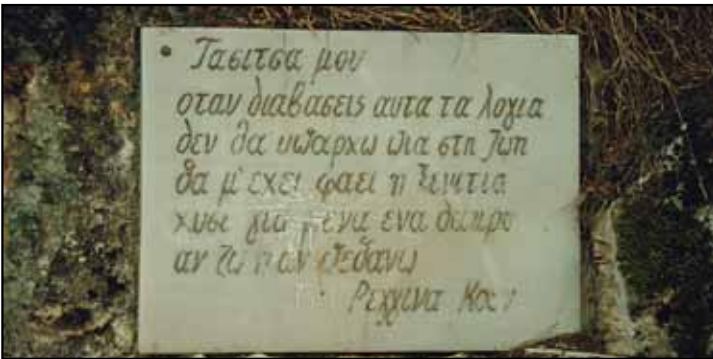 • Τασιτσα μου
οταν διαβασεις αυτα τα λογια
δεν θα υπαρχω πια στη ζωη
θα μ' εχει φαει η ξενιτια
χυσε για μενα ενα
αν ζω η αν πεθανω
Ρεγγινα